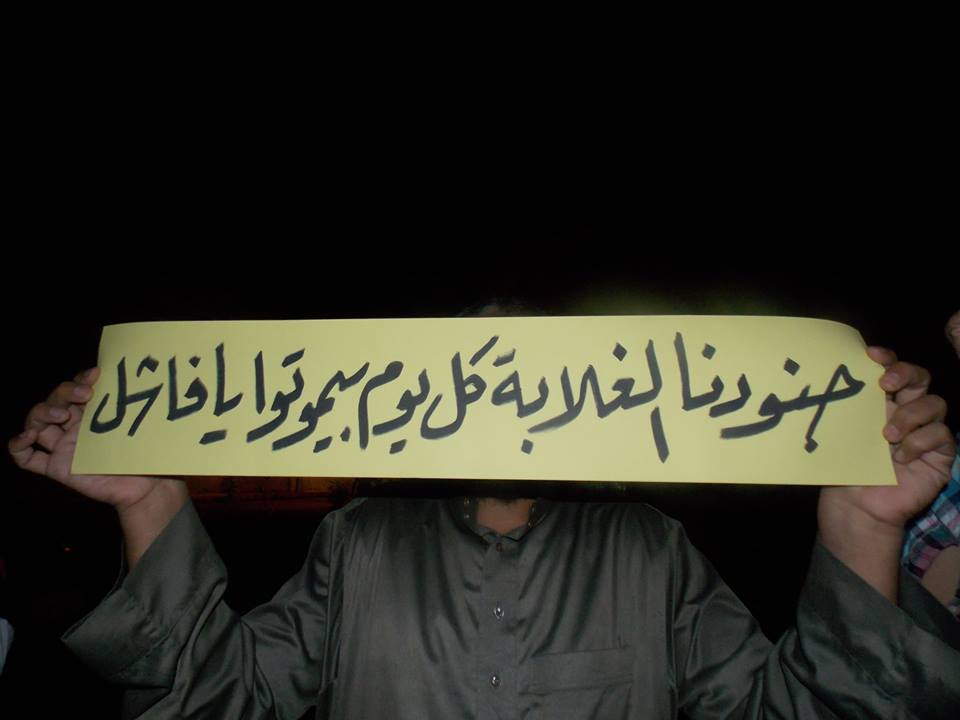 جنودنا الغلابة كل يوم بيموتوا يا فاشل